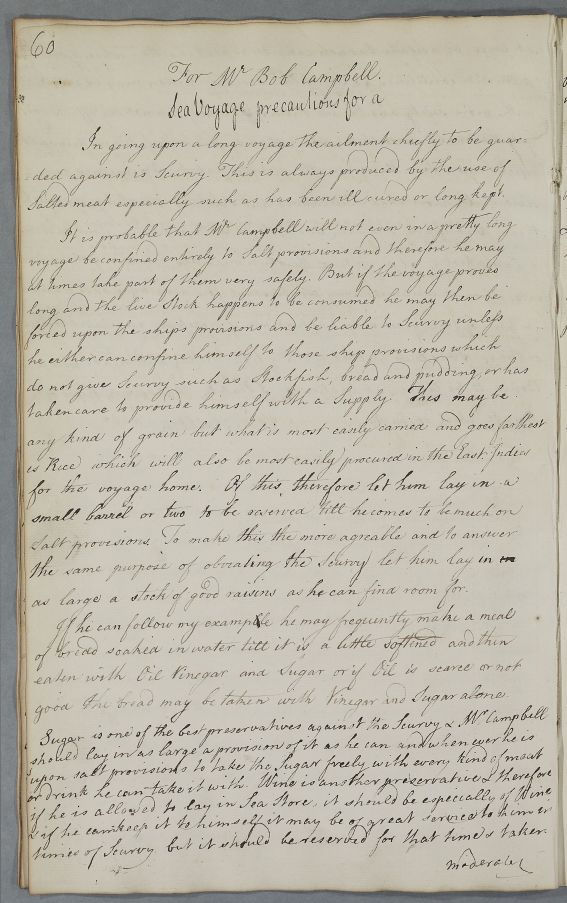 60
For Mr Bob Campbell.
Sea Voyage precautions for a
In going upon a long voyage the ailment chiefly to be guar-
-ded against is Scurvy. This is always produced by the use of
Salted meat especially such as has been ill cured or long kept.
It is probable that Mr Campbell will not even in a pretty long
voyage be confined entirely to Salt provisions and therefore he may
at times take part of them very safely. But if the voyage proves
long and the live Stock happens to be consumed he may then be
forced upon the ships provisions and be liable to Scurvy unless
he either can confine himself to those ship provisions which
do not give Scurvy such as Stockfish, bread and pudding, or has
taken care to provide himself with a Supply. This may be
any kind of grain but what is most easily carried and goes farthest
is Rice which will also be most easily procured in the East Indies
for the voyage home. Of this therefore let him lay in a
small barrel or two to be reserved till he comes to be much on
Salt provisions. To make this the more agreable and to answer
the same purpose of obviating the Scurvy let him lay in
as large a stock of good raisins as he can find room for.
If he can follow my example he may frequently make a meal
of bread soaked in water till it is a little softened and then
eaten with Oil Vinegar and Sugar or if Oil is scarce or not
good the bread may be taken with Vinegar and Sugar alone.
Sugar is one of the best preservatives against the Scurvy & Mr Campbell
should lay in as large a provision of it as he can and when ever he is
upon salt provisions to take the Sugar freely with every kind of meat
or drink he can take it with. Wine is another preservative & therefore
if he is allowed to lay in Sea Store, it should be especially of Wine
& if he can keep it to himself it may be of great service to him in
times of Scurvy but it should be reserved for that time & taken
moderately